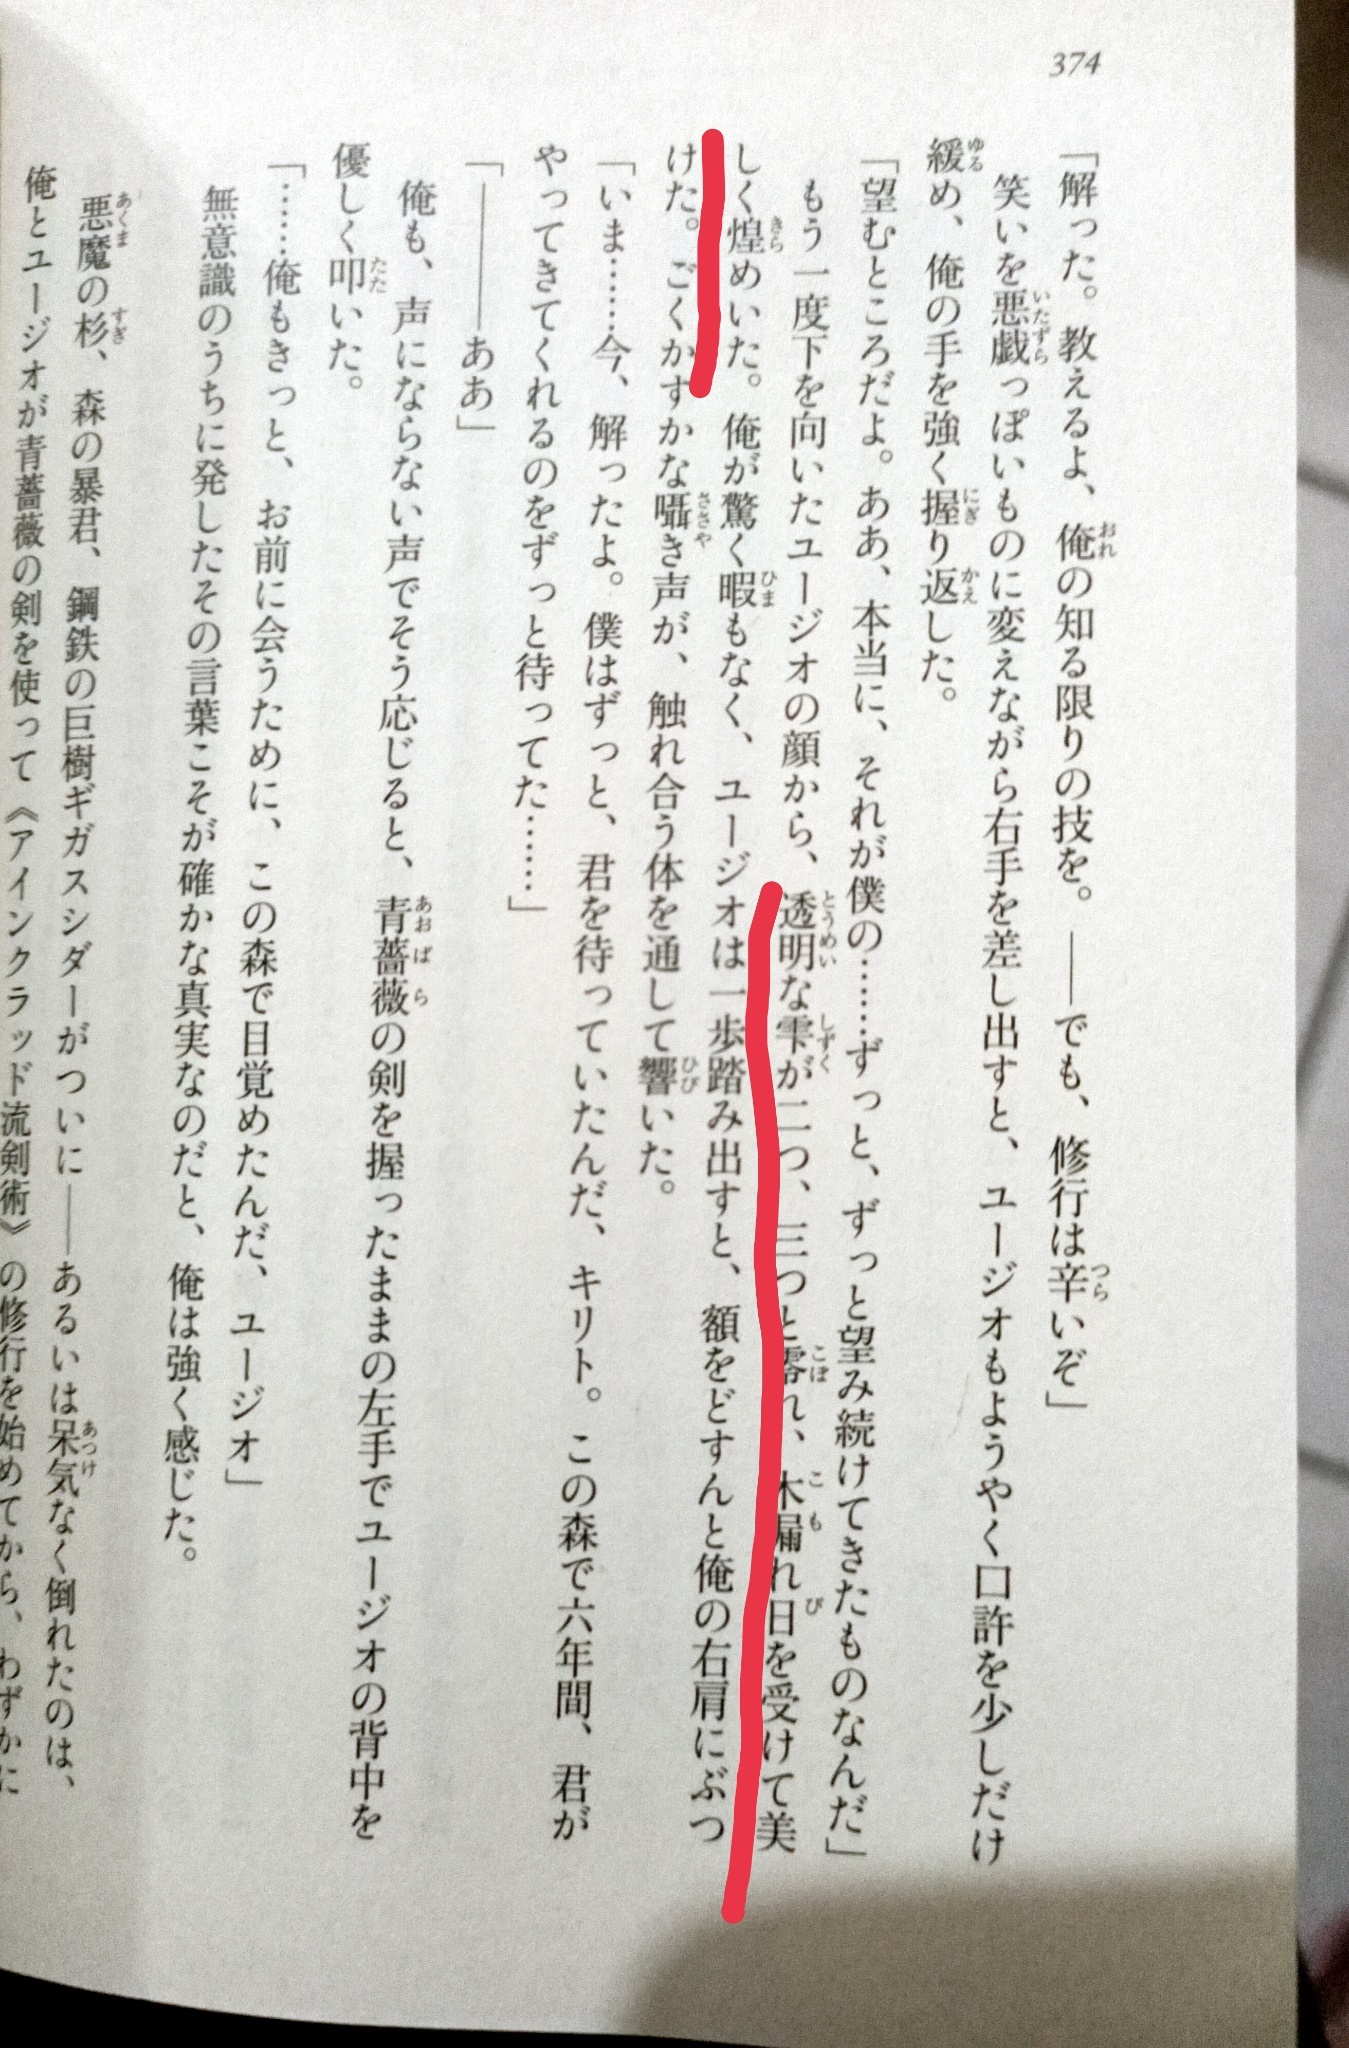 374
「解った。教えるよ、俺の知る限りの技を。――でも、修行は辛いぞ」
笑いを悪戯っぽいものに変えながら右手を差し出すと、ユージオもようやく口許を少しだけ
緩め、俺の手を強く握り返した。
「望むところだよ。ああ、本当に、それが僕の……ずっと、ずっと望み続けてきたものなんだ」
もう一度下を向いたユージオの顔から、透明な雫が二つ、三つと零れ、木漏れ日を受けて美
しく煌めいた。俺が驚く暇もなく、ユージオは一歩踏み出すと、額をどすんと俺の右肩にぶつ
けた。ごくかすかな囁き声が、触れ合う体を通して響いた。
「いま……今、解ったよ。僕はずっと、君を待っていたんだ、キリト。この森で六年間、君が
やってきてくれるのをずっと待ってた……」
「――ああ」
俺も、声にならない声でそう応じると、青薔薇の剣を握ったままの左手でユージオの背中を
優しく叩いた。
「……俺もきっと、お前に会うために、この森で目覚めたんだ、ユージオ」
無意識のうちに発したその言葉こそが確かな真実なのだと、俺は強く感じた。
悪魔の杉、森の暴君、鋼鉄の巨樹ギガスシダーがついに――あるいは呆気なく倒れたのは、
俺とユージオが青薔薇の剣を使って《アインクラッド流剣術》の修行を始めてから、わずかに